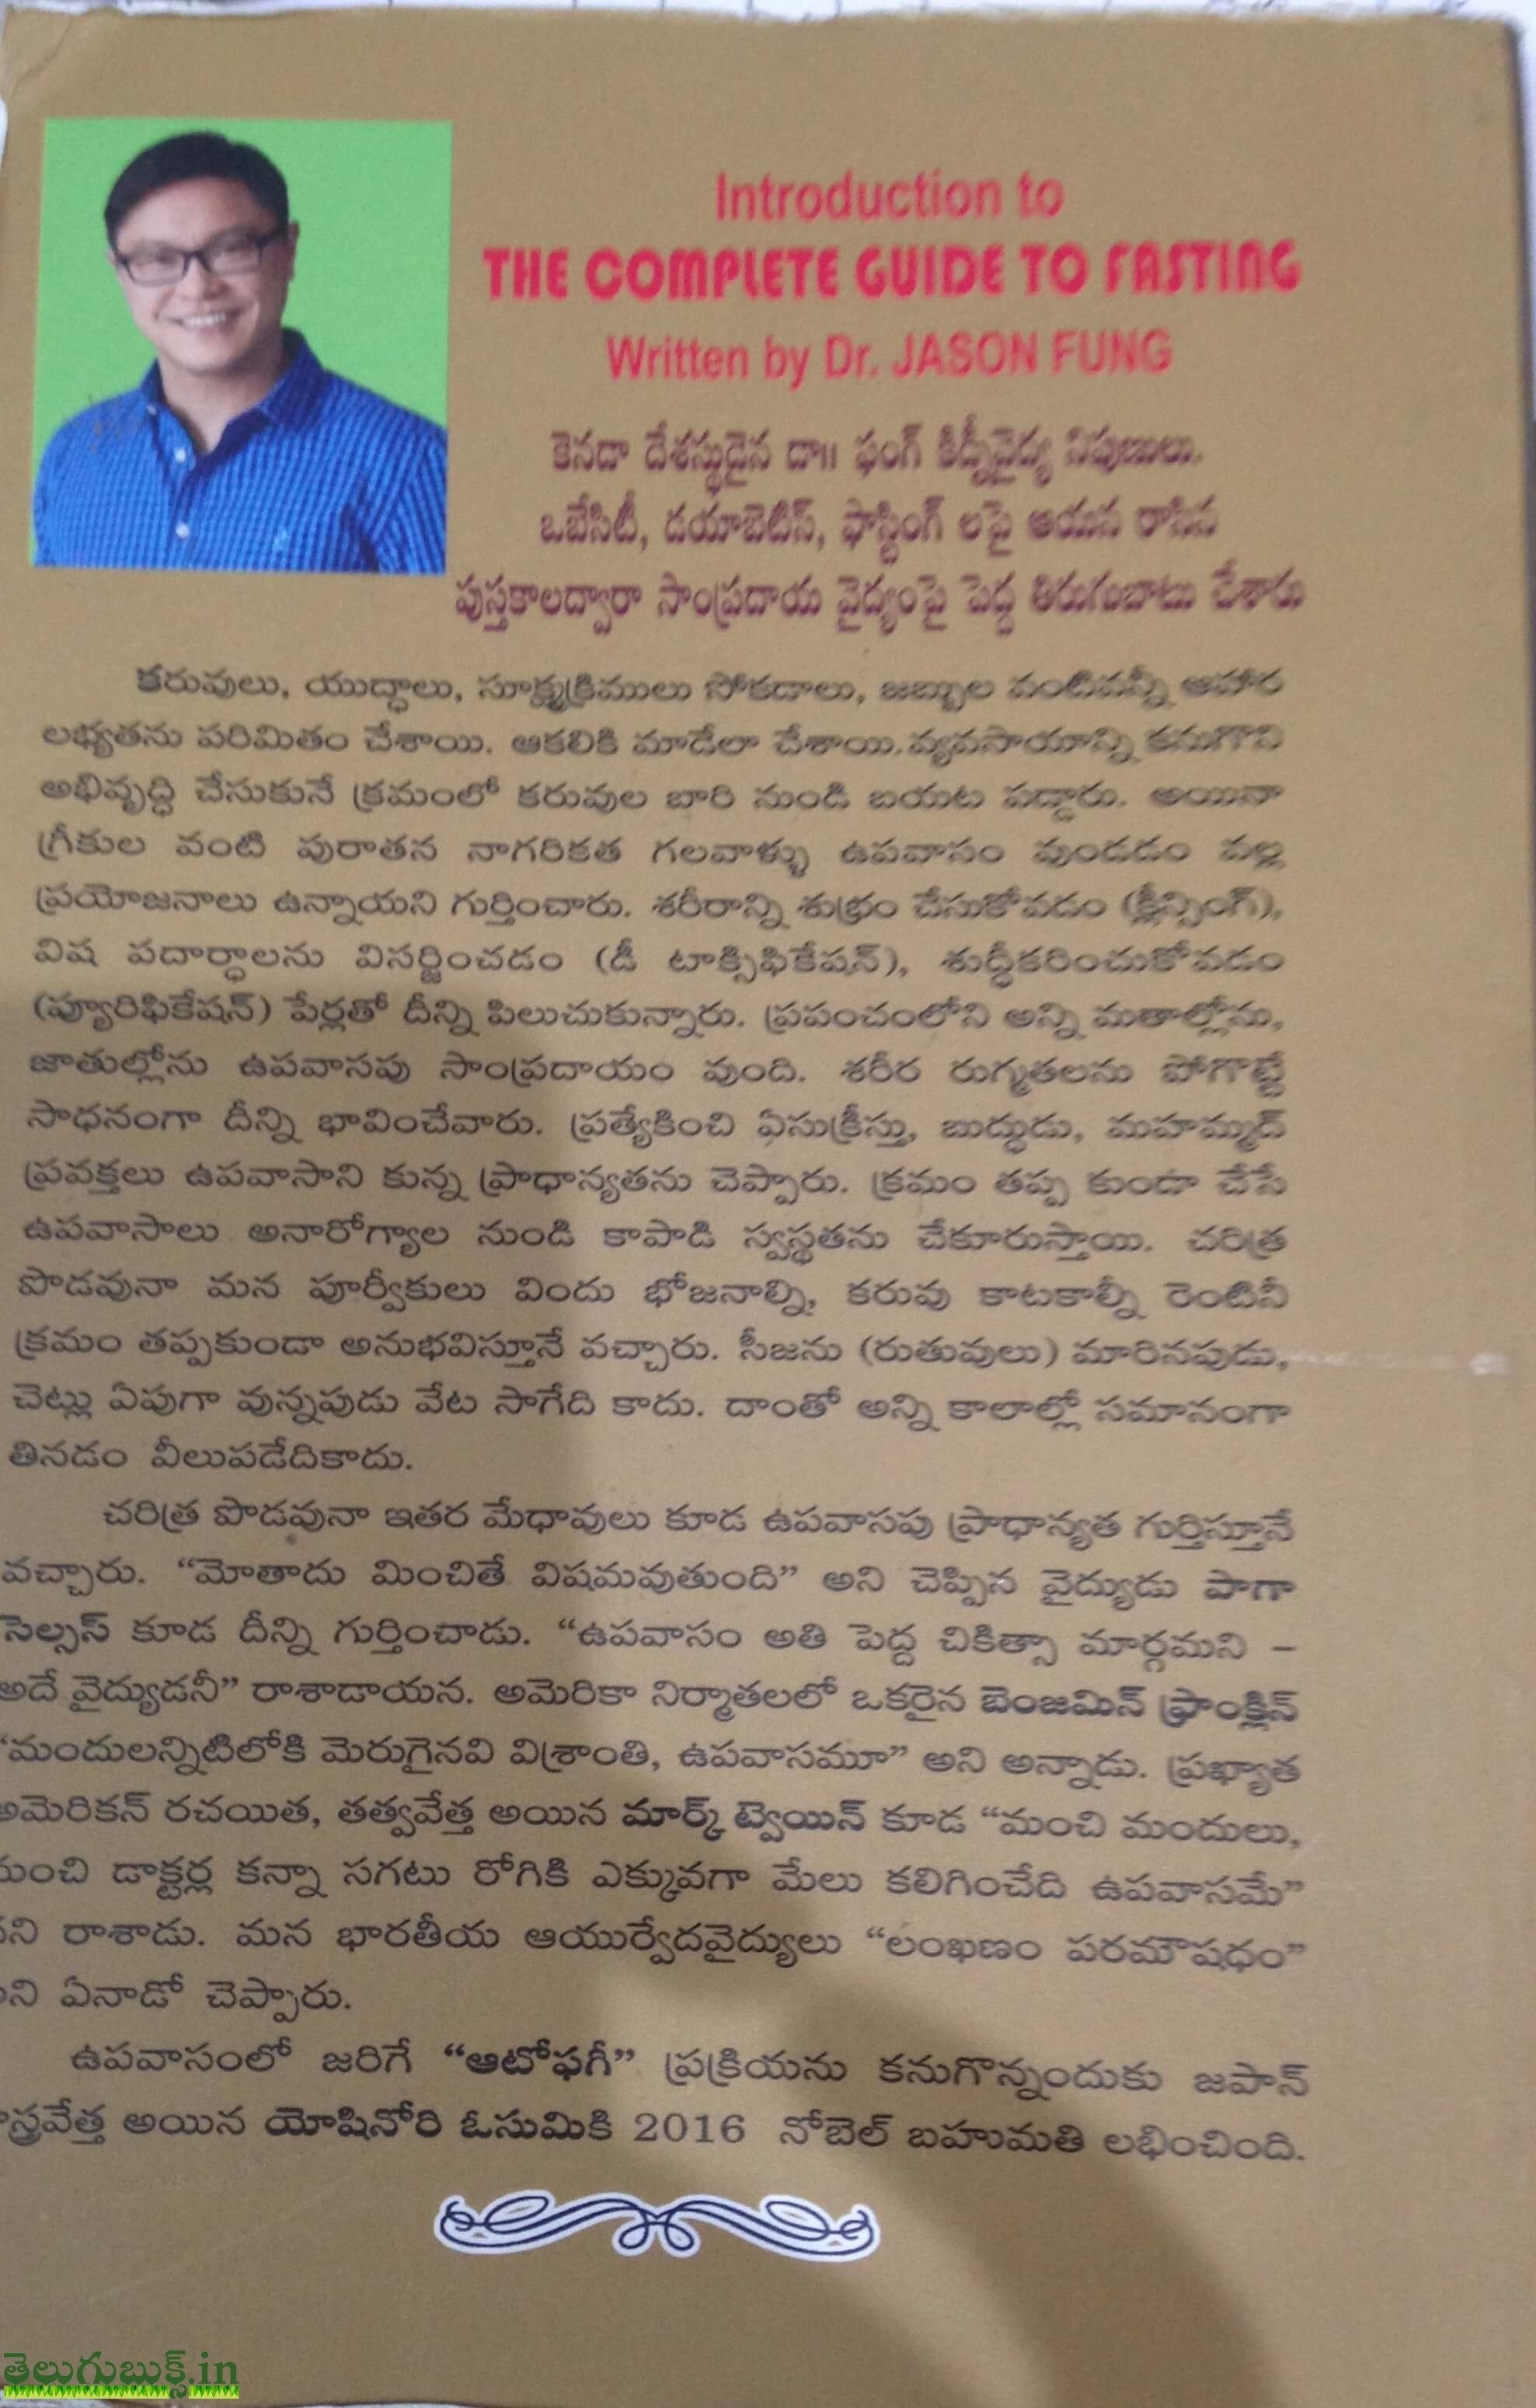 Introduction to
THE COMPLETE GUIDE TO FASTING
Written by Dr. JASON FUNG
కెనడా దేశస్థుడైన డా॥ ఫంగ్ కిడ్నీవైద్య నిపుణులు.
ఒబేసిటీ, డయాబెటిస్, ఫాస్టింగ్ లపై ఆయన రాసిన
పుస్తకాలద్వారా సాంప్రదాయ వైద్యంపై పెద్ద తిరుగుబాటు చేశారు
కరువులు, యుద్ధాలు, సూక్ష్మక్రిములు సోకడాలు, జబ్బుల వంటివన్నీ ఆహార
లభ్యతను పరిమితం చేశాయి. ఆకలికి మాడేలా చేశాయి. వ్యవసాయాన్ని కనుగొని
అభివృద్ధి చేసుకునే క్రమంలో కరువుల బారి నుండి బయట పడ్డారు. అయినా
గ్రీకుల వంటి పురాతన నాగరికత గలవాళ్ళు ఉపవాసం వుండడం వల్ల
ప్రయోజనాలు ఉన్నాయని గుర్తించారు. శరీరాన్ని శుభ్రం చేసుకోవడం (క్లీన్సింగ్),
విష పదార్థాలను విసర్జించడం (డీ టాక్సిఫికేషన్), శుద్ధీకరించుకోవడం
(ప్యూరిఫికేషన్) పేర్లతో దీన్ని పిలుచుకున్నారు. ప్రపంచంలోని అన్ని మతాల్లోను,
జాతుల్లోను ఉపవాసపు సాంప్రదాయం వుంది. శరీర రుగ్మతలను పోగొట్టే
సాధనంగా దీన్ని భావించేవారు. ప్రత్యేకించి ఏసుక్రీస్తు, బుద్ధుడు, మహమ్మద్
ప్రవక్తలు ఉపవాసాని కున్న ప్రాధాన్యతను చెప్పారు. క్రమం తప్ప కుండా చేసే
ఉపవాసాలు అనారోగ్యాల నుండి కాపాడి స్వస్థతను చేకూరుస్తాయి. చరిత్ర
పొడవునా మన పూర్వీకులు విందు భోజనాల్ని, కరువు కాటకాల్నీ రెంటినీ
క్రమం తప్పకుండా అనుభవిస్తూనే వచ్చారు. సీజను (రుతువులు) మారినపుడు,
చెట్లు ఏపుగా వున్నపుడు వేట సాగేది కాదు. దాంతో అన్ని కాలాల్లో సమానంగా
తినడం వీలుపడేదికాదు.
చరిత్ర పొడవునా ఇతర మేధావులు కూడ ఉపవాసపు ప్రాధాన్యత గుర్తిస్తూనే
వచ్చారు. “మోతాదు మించితే విషమవుతుంది” అని చెప్పిన వైద్యుడు పాగా
సెల్సస్ కూడ దీన్ని గుర్తించాడు. “ఉపవాసం అతి పెద్ద చికిత్సా మార్గమని –
అదే వైద్యుడనీ” రాశాడాయన. అమెరికా నిర్మాతలలో ఒకరైన బెంజమిన్ ఫ్రాంక్లిన్
“మందులన్నిటిలోకి మెరుగైనవి విశ్రాంతి, ఉపవాసమూ” అని అన్నాడు. ప్రఖ్యాత
అమెరికన్ రచయిత, తత్వవేత్త అయిన మార్క్ ట్వెయిన్ కూడ “మంచి మందులు,
మంచి డాక్టర్ల కన్నా సగటు రోగికి ఎక్కువగా మేలు కలిగించేది ఉపవాసమే”
రాశాడు. మన భారతీయ ఆయుర్వేదవైద్యులు “లంఖణం పరమౌషధం”
ఏనాడో చెప్పారు.
ఉపవాసంలో జరిగే “ఆటోఫగీ” ప్రక్రియను కనుగొన్నందుకు జపాన్
అయిన యోషినోరి ఓసుమికి 2016 నోబెల్ బహుమతి లభించింది.
తెలుగుబుక్స్.in